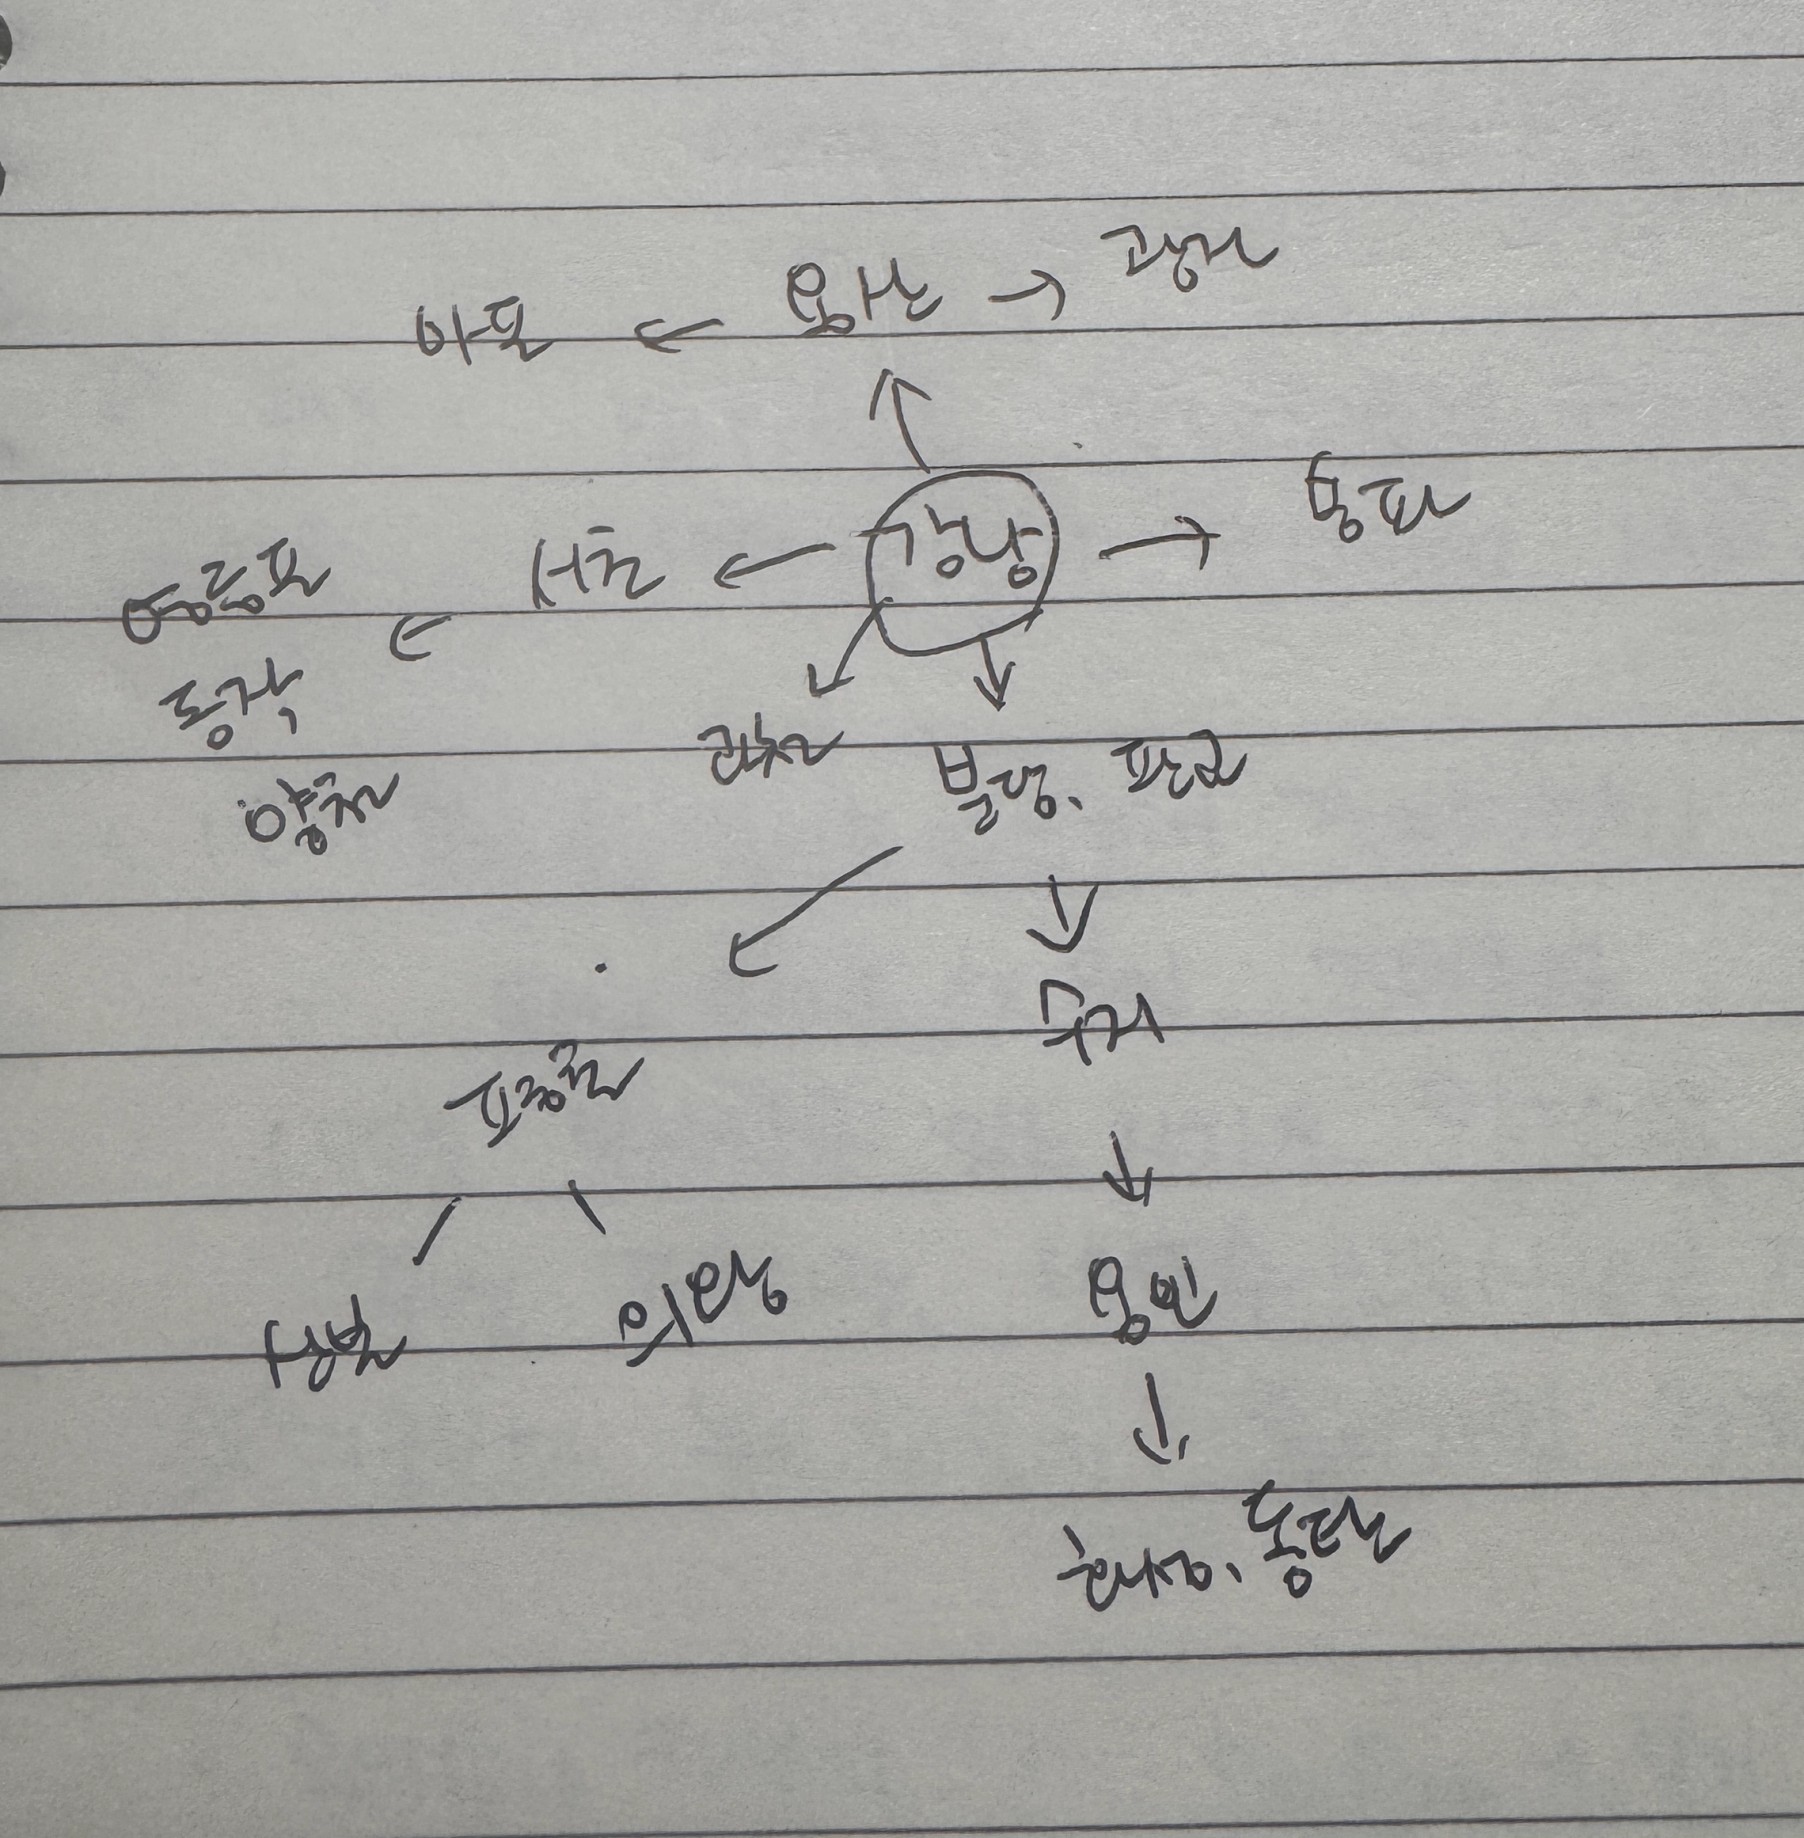 용산 → 광진
마포 ←
강남 → 송파
서초 ←
영등포 ←
동작,
양천
과천
분당, 판교
수지
평촌
용인
산본
의왕
화성, 동탄